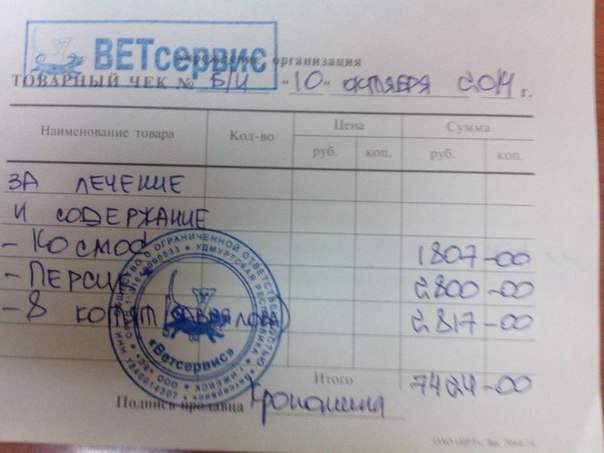 ВЕТсервис
организация
ТОВАРНЫЙ ЧЕК № Б/Н "10" октября 2014 г.
Наименование товара Кол-во Цена Сумма
руб. коп. руб. коп.
ЗА ЛЕЧЕНИЕ
И СОДЕРЖАНИЕ
- Космос 1807-00
- Персик 2800-00
- 8 котят 2817-00
Итого 7424-00
Подпись продавца
ОБЩЕСТВО С ОГРАНИЧЕННОЙ ОТВЕТСТВЕННОСТЬЮ
УДМУРТСКАЯ РЕСПУБЛИКА
г. ИЖЕВСК
«Ветсервис»